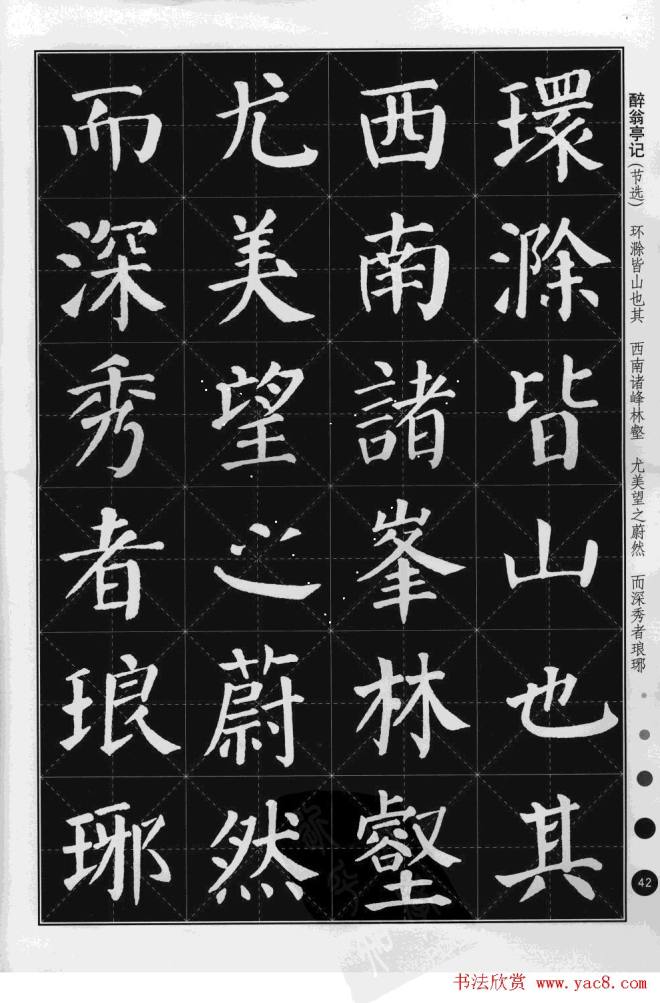 環滁皆山也其
西南諸峯林壑
尤美望之蔚然
而深秀者琅琊
醉翁亭记（节选） 环滁皆山也其 西南诸峰林壑 尤美望之蔚然 而深秀者琅琊
42
书法欣赏 www.yac8.com